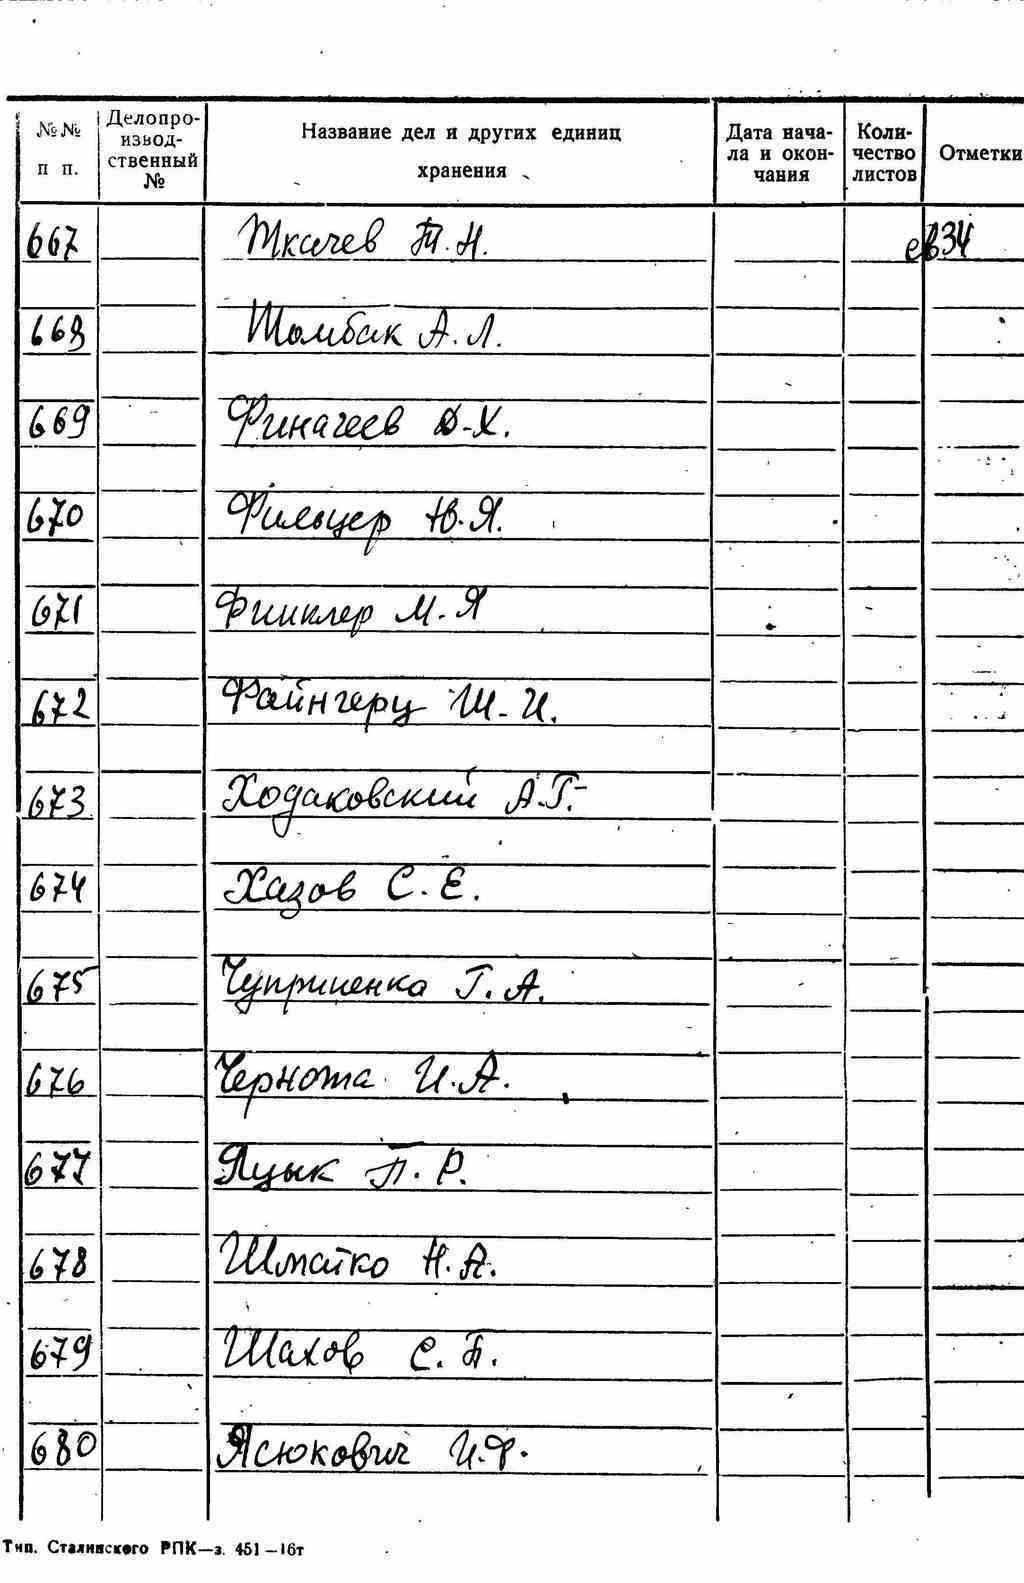 №№ п п.
Делопроизводственный №
Название дел и других единиц хранения
Дата начала и окончания
Количество листов
Отметки
667 Ткачев Т. Н.
668 Томбак А. Л.
669 Финагеев Д-Х.
670 Фильцер Ю. Я.
671 Финклер М. Я
672 Файнгерц Ш. И.
673 Ходаковский А. Г.
674 Хазов С. Е.
675 Чуприненко Г. А.
676 Чернота И. А.
677 Яцык П. Р.
678 Шматко Н. А.
679 Шахов С. Б.
680 Ясюкович И. Ф.
Тип. Сталинского РПК—з. 451—16т